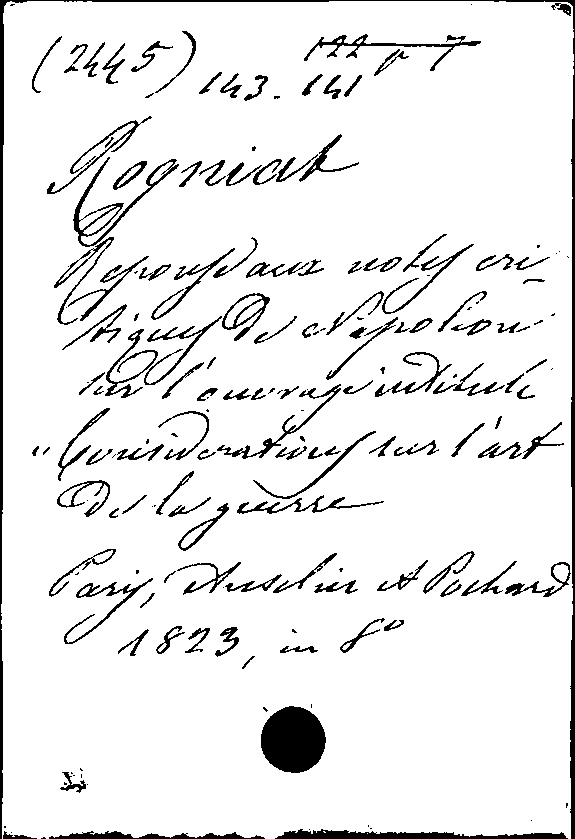 (2445) 122 p 7
143.141
Rogniat
Réponse aux notes cri-
tiques de Napoléon
sur l'ouvrage intitulé
"Considérations sur l'art
de la guerre
Paris, Anselin et Pochard
1823, in 8°